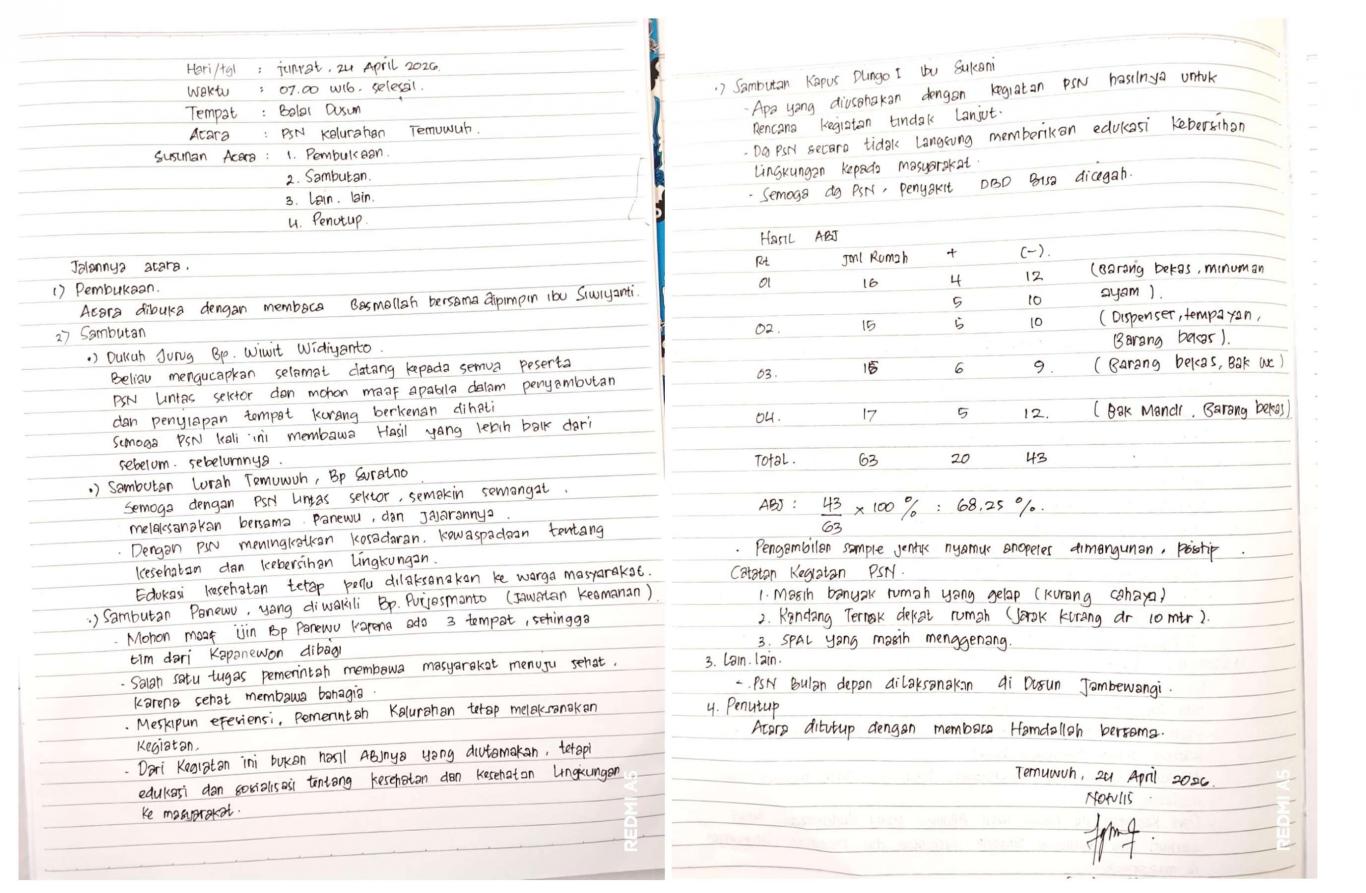 Hari/tgl : jumat, 24 April 2026.
Waktu : 07.00 WIB. selesai.
Tempat : Balai Dusun
Acara : PSN Kalurahan Temuwuh.
Susunan Acara : 1. Pembukaan.
2. Sambutan.
3. Lain. lain.
4. Penutup.
Jalannya acara.
1) Pembukaan.
Acara dibuka dengan membaca Basmallah bersama dipimpin ibu Siwiyanti.
2) Sambutan
•) Dukuh Jurug Bp. Wiwit Widiyanto.
Beliau mengucapkan selamat datang kepada semua peserta
PSN lintas sektor dan mohon maaf apabila dalam penyambutan
dan penyiapan tempat kurang berkenan dihati
Semoga PSN kali ini membawa Hasil yang lebih baik dari
sebelum. sebelumnya.
•) Sambutan Lurah Temuwuh, Bp Suratno
Semoga dengan PSN lintas sektor, semakin semangat.
melaksanakan bersama Panewu, dan Jajarannya.
. Dengan PSN meningkatkan kesadaran. kewaspadaan tentang
kesehatan dan kebersihan Lingkungan.
Edukasi kesehatan tetap perlu dilaksanakan ke warga masyarakat.
•) Sambutan Panewu, yang diwakili Bp. Purjasmanto (Jawatan Keamanan)
- Mohon maaf ijin Bp Panewu karena ada 3 tempat, sehingga
tim dari Kapanewon dibagi
- Salah satu tugas pemerintah membawa masyarakat menuju sehat.
karena sehat membawa bahagia.
. Meskipun efesiensi, Pemerintah Kalurahan tetap melaksanakan
Kegiatan.
- Dari Kegiatan ini bukan hasil ABJnya yang diutamakan, tetapi
edukasi dan sosialisasi tentang kesehatan dan kesehatan Lingkungan
Ke masyarakat.
REDMI A5
•) Sambutan Kapus Dlingo I Ibu Sukani
- Apa yang diusahakan dengan kegiatan PSN hasilnya untuk
Rencana kegiatan tindak Lanjut.
- Dg PSN secara tidak Langsung memberikan edukasi Kebersihan
Lingkungan kepada masyarakat.
- Semoga dg PSN, Penyakit DBD Bisa dicegah.
Hasil ABJ
Rt Jml Rumah + (-).
01 16 4 12 (Barang bekas, minuman
5 10 ayam).
02. 15 5 10 (Dispenser, tempayan,
Barang bekas).
03. 15 6 9. (Barang bekas, Bak wc)
04. 17 5 12. (Bak Mandi, Barang bekas)
Total. 63 20 43
ABJ : 43/63 x 100 % : 68,25 %.
. Pengambilan sample jentik nyamuk anopeles dimangunan, Positip.
Catatan Kegiatan PSN.
1. Masih banyak rumah yang gelap (Kurang cahaya)
2. Kandang Ternak dekat rumah (Jarak kurang dr 10 mtr).
3. SPAL yang masih menggenang.
3. Lain. lain.
- PSN Bulan depan dilaksanakan di Dusun Jambewangi.
4. Penutup
Acara ditutup dengan membaca Hamdallah bersama.
Temuwuh, 24 April 2026.
Notulis
REDMI A5